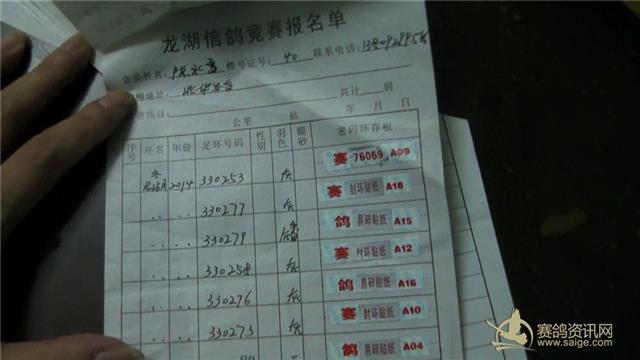 龙湖信鸽竞赛报名单
会员姓名: 棚号证号: 40 联系电话:
地址:
项目: 共计 羽
公里 站 年 月 日
序号 环名 年份 足环号码 性别 羽色 眼砂 密码环存根
2014 330253 灰 赛 76069 A09
,, ,, 330277 灰 赛 封环贴纸 A18
,, ,, 330279 鸽 易碎贴纸 A15
,, ,, 330258 灰 赛 封环贴纸 A12
,, ,, 330276 灰 鸽 易碎贴纸 A16
,, ,, 330273 灰 赛 封环贴纸 A10
鸽 易碎贴纸 A04
赛鸽资讯网
www.saige.com